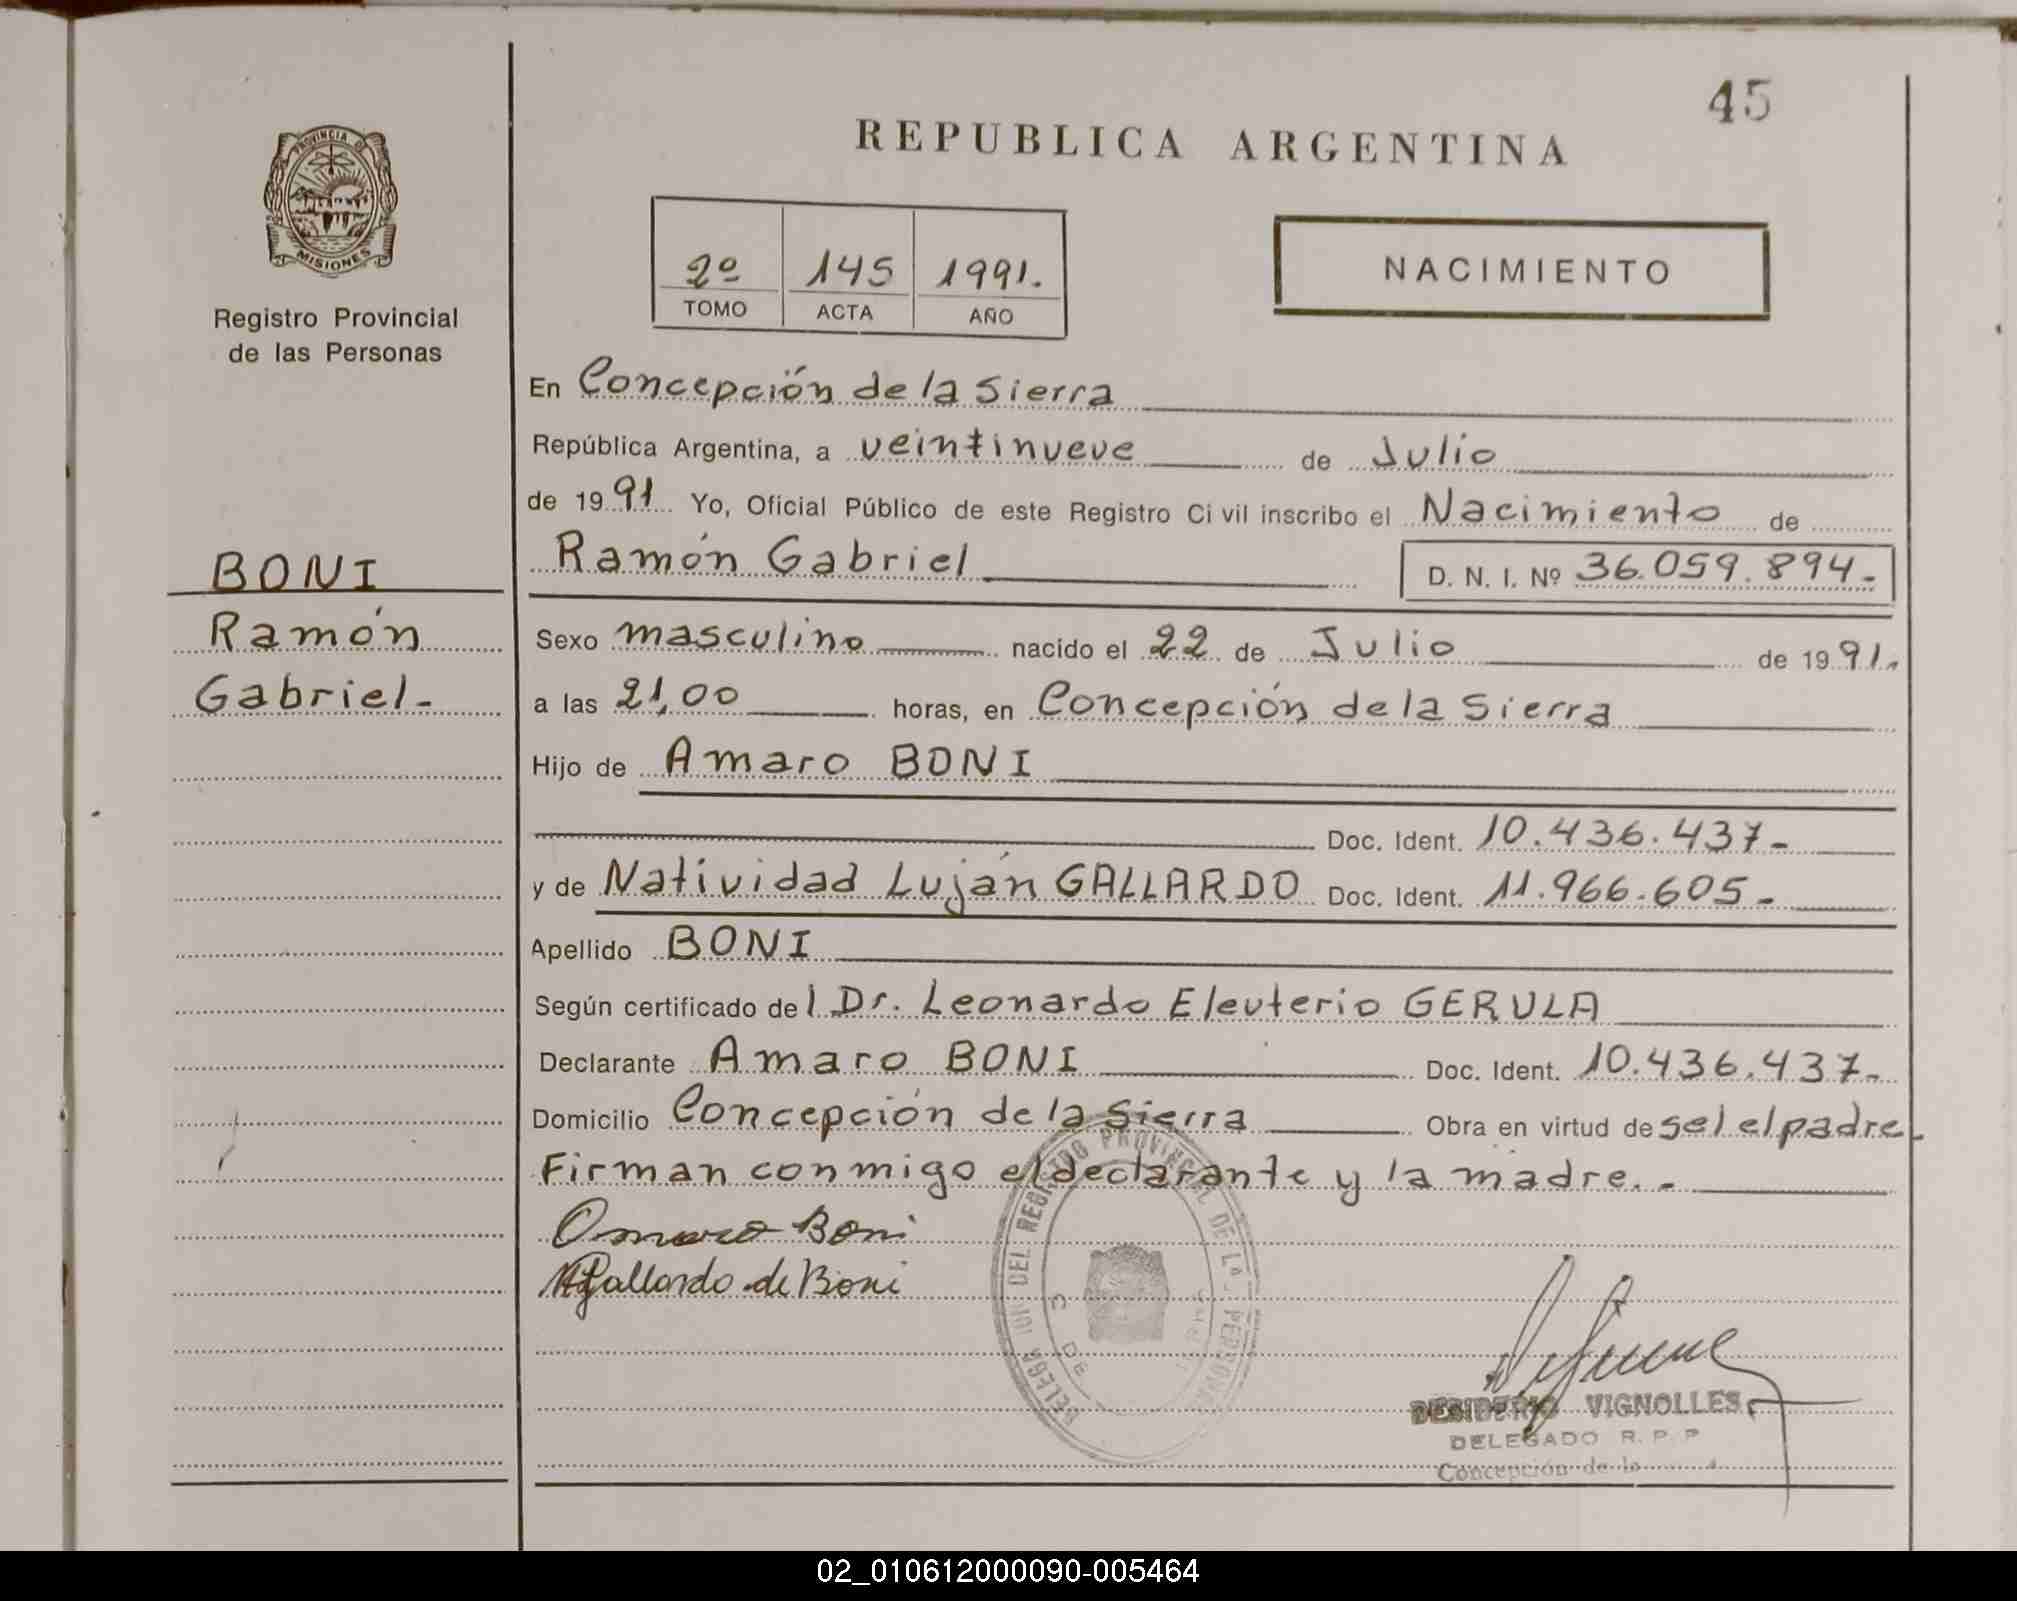 45
REPUBLICA ARGENTINA
PROVINCIA DE
MISIONES
Registro Provincial
de las Personas
2º 145 1991.
TOMO ACTA AÑO
NACIMIENTO
En Concepción de la Sierra
República Argentina, a veintinueve de Julio
de 1991 Yo, Oficial Público de este Registro Civil inscribo el Nacimiento de
Ramón Gabriel D. N. I. Nº 36.059.894.-
BONI
Ramón
Gabriel-
Sexo masculino nacido el 22 de Julio de 1991.
a las 21,00 horas, en Concepción de la Sierra
Hijo de Amaro BONI
Doc. Ident. 10.436.437-
y de Natividad Luján GALLARDO Doc. Ident. 11.966.605-
Apellido BONI
Según certificado del Dr. Leonardo Eleuterio GERULA
Declarante Amaro BONI Doc. Ident. 10.436.437-
Domicilio Concepción de la Sierra Obra en virtud de sel el padre.
Firman conmigo el declarante y la madre.-
Boni
Gallardo de Boni
DEL REGISTRO PROVINCIAL DE LAS PERSONAS
DESIDERIO VIGNOLLES
DELEGADO R. P. P
Concepción de la
02_010612000090-005464